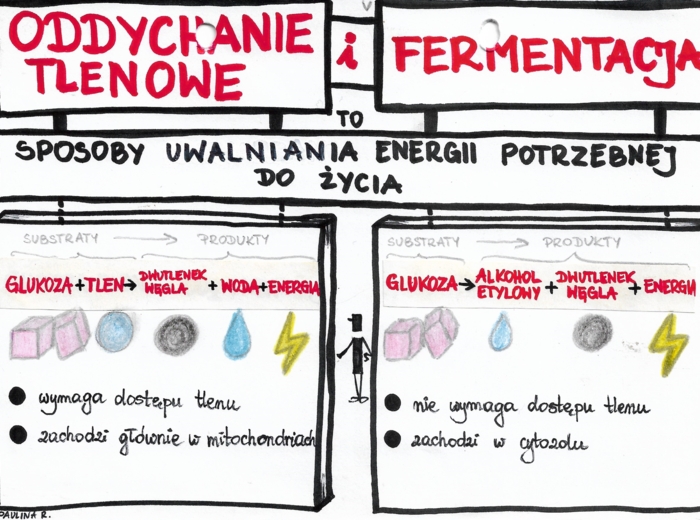 ODDYCHANIE
TLENOWE
i
FERMENTACJA
TO
SPOSOBY UWALNIANIA ENERGII POTRZEBNEJ
DO ŻYCIA
SUBSTRATY → PRODUKTY
GLUKOZA + TLEN → DWUTLENEK WĘGLA + WODA + ENERGIA
wymaga dostępu tlenu
zachodzi głównie w mitochondriach
SUBSTRATY → PRODUKTY
GLUKOZA → ALKOHOL ETYLOWY + DWUTLENEK WĘGLA + ENERGIA
nie wymaga dostępu tlenu
zachodzi w cytozolu
PAULINA R.